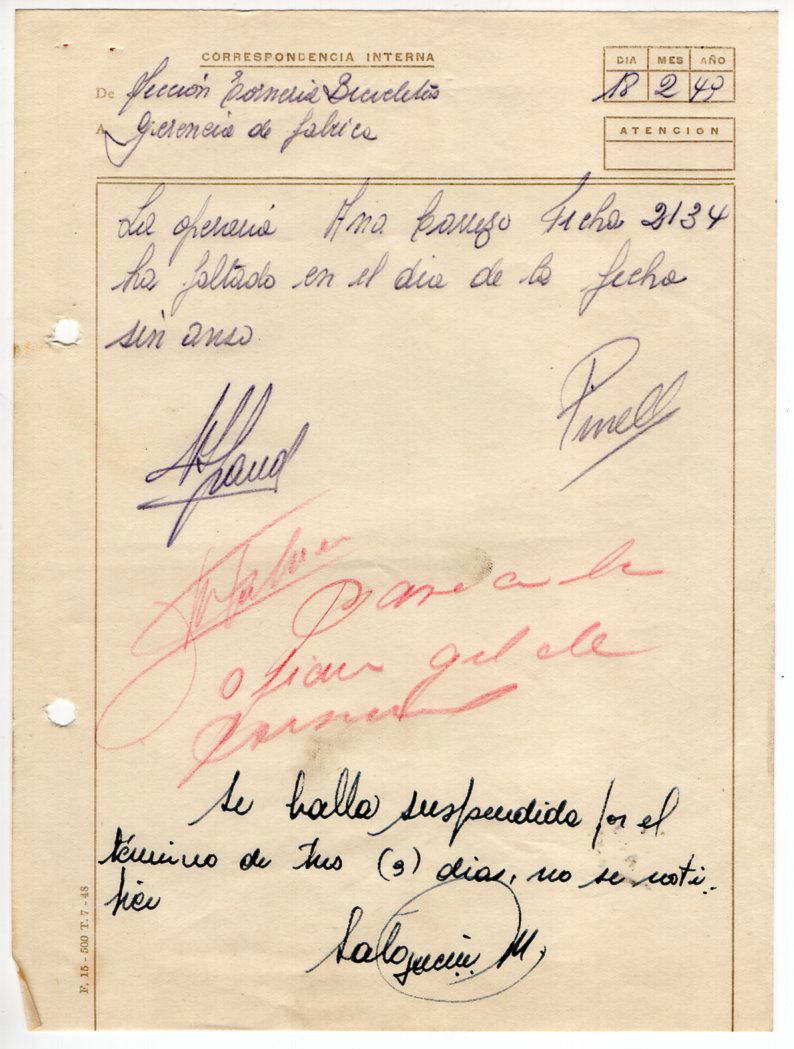 CORRESPONDENCIA INTERNA
DIA MES AÑO
18 2 49
De Sección Tornería Bicicletas
A Gerencia de fabrica
ATENCION
La operaria Ana Carrizo Ficha 2134
ha faltado en el dia de la fecha
sin aviso
Pinell
pase a la
oficina gral de
personal
se halla suspendida por el
término de tres (3) dias, no se noti-
ficó
M.
F. 15 - 500 T. 7 - 48